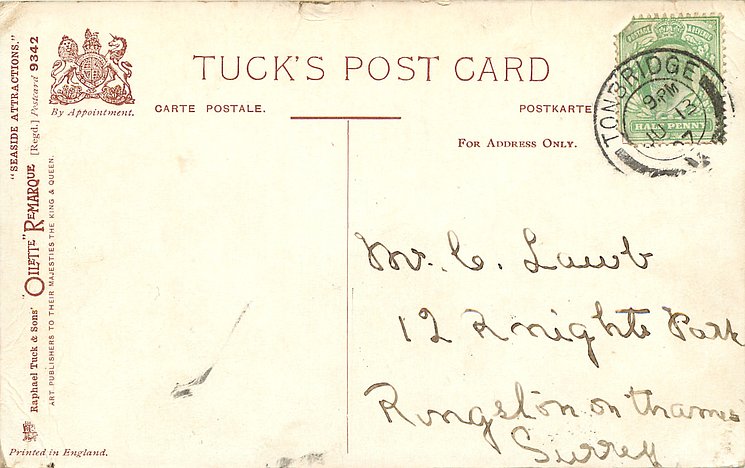 "SEASIDE ATTRACTIONS."
Raphael Tuck & Sons' "OILETTE" REMARQUE [Regd.] Postcard 9342
ART PUBLISHERS TO THEIR MAJESTIES THE KING & QUEEN.
By Appointment.
TUCK'S POST CARD
CARTE POSTALE.
POSTKARTE
FOR ADDRESS ONLY.
TONBRIDGE
9 PM
JU 12
07
HALFPENNY
Mr. C. Lamb
12 Knights Park
Kingston on Thames
Surrey
Printed in England.